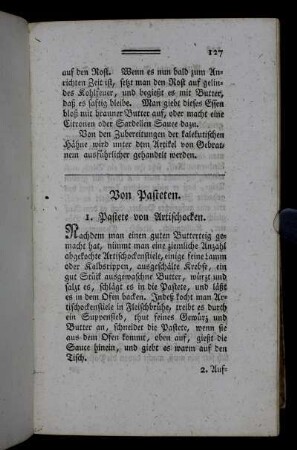 127
auf den Rost. Wenn es nun bald zum An-
richten Zeit ist, setzt man den Rost auf gelin-
des Kohlfeuer, und begießt es mit Butter,
daß es saftig bleibe. Man giebt dieses Essen
bloß mit brauner Butter auf, oder macht eine
Citronen oder Sardellen Sauce dazu.
Von den Zubereitungen der kalekutischen
Hähne wird unter dem Artikel von Gebrat-
nem ausführlicher gehandelt werden.
Von Pasteten.
1. Pastete von Artischocken.
Nachdem man einen guten Butterteig ge-
macht hat, nimmt man eine ziemliche Anzahl
abgekochte Artischockenstiele, einige feine Lamm
oder Kalbsrippen, ausgeschälte Krebse, ein
gut Stük ausgewaschne Butter, würzt und
salzt es, schlägt es in die Pastete, und läßt
es in dem Ofen backen. Indeß kocht man Ar-
tischockenstiele in Fleischbrühe, treibt es durch
ein Suppensieb, thut feines Gewürz und
Butter an, schneidet die Pastete, wenn sie
aus dem Ofen kommt, oben auf, gießt die
Sauce hinein, und giebt es warm auf den
Tisch.
2. Auf-